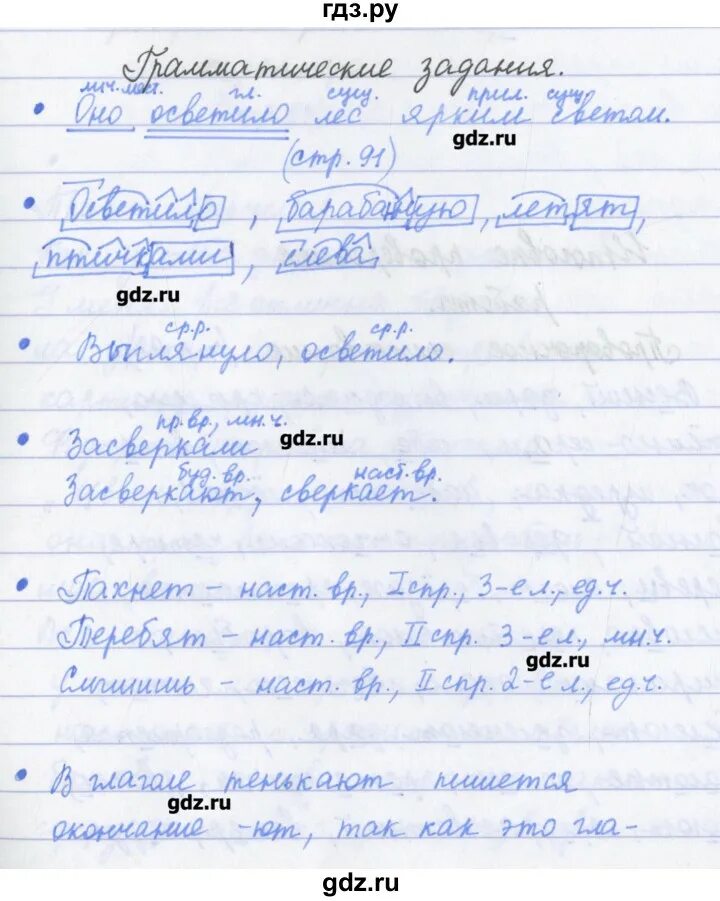 гдз.ру
Грамматические задания.
лич.мест. гл. сущ. прил. сущ.
• Оно осветило лес ярким светом.
gdz.ru
(стр. 91)
• Осветило, барабанную, летят,
птичками, слева
gdz.ru
ср.р. ср.р.
• Выглянуло, осветило.
пр.вр., мн.ч.
• Засверкали
gdz.ru
буд.вр. наст.вр.
Засверкают, сверкает.
• Пахнет – наст. вр., I спр., 3-е л., ед.ч.
Теребят – наст. вр., II спр. 3-е л., мн.ч.
gdz.ru
Слышишь – наст. вр., II спр. 2-е л., ед.ч.
• В глаголе тенькают пишется
gdz.ru
окончание -ют, так как это гла-
gdz.ru